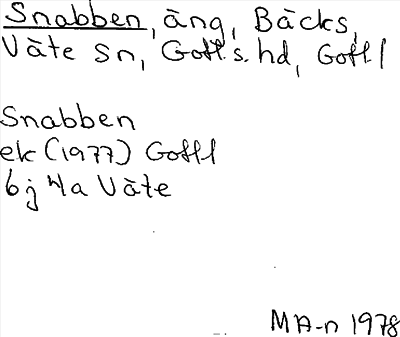 Snabben, äng, Bäcks,
Väte sn, Gotl.s.hd, Gotl.l
Snabben
ek (1977) Gotll
6j 4a Väte
MA-n 1978